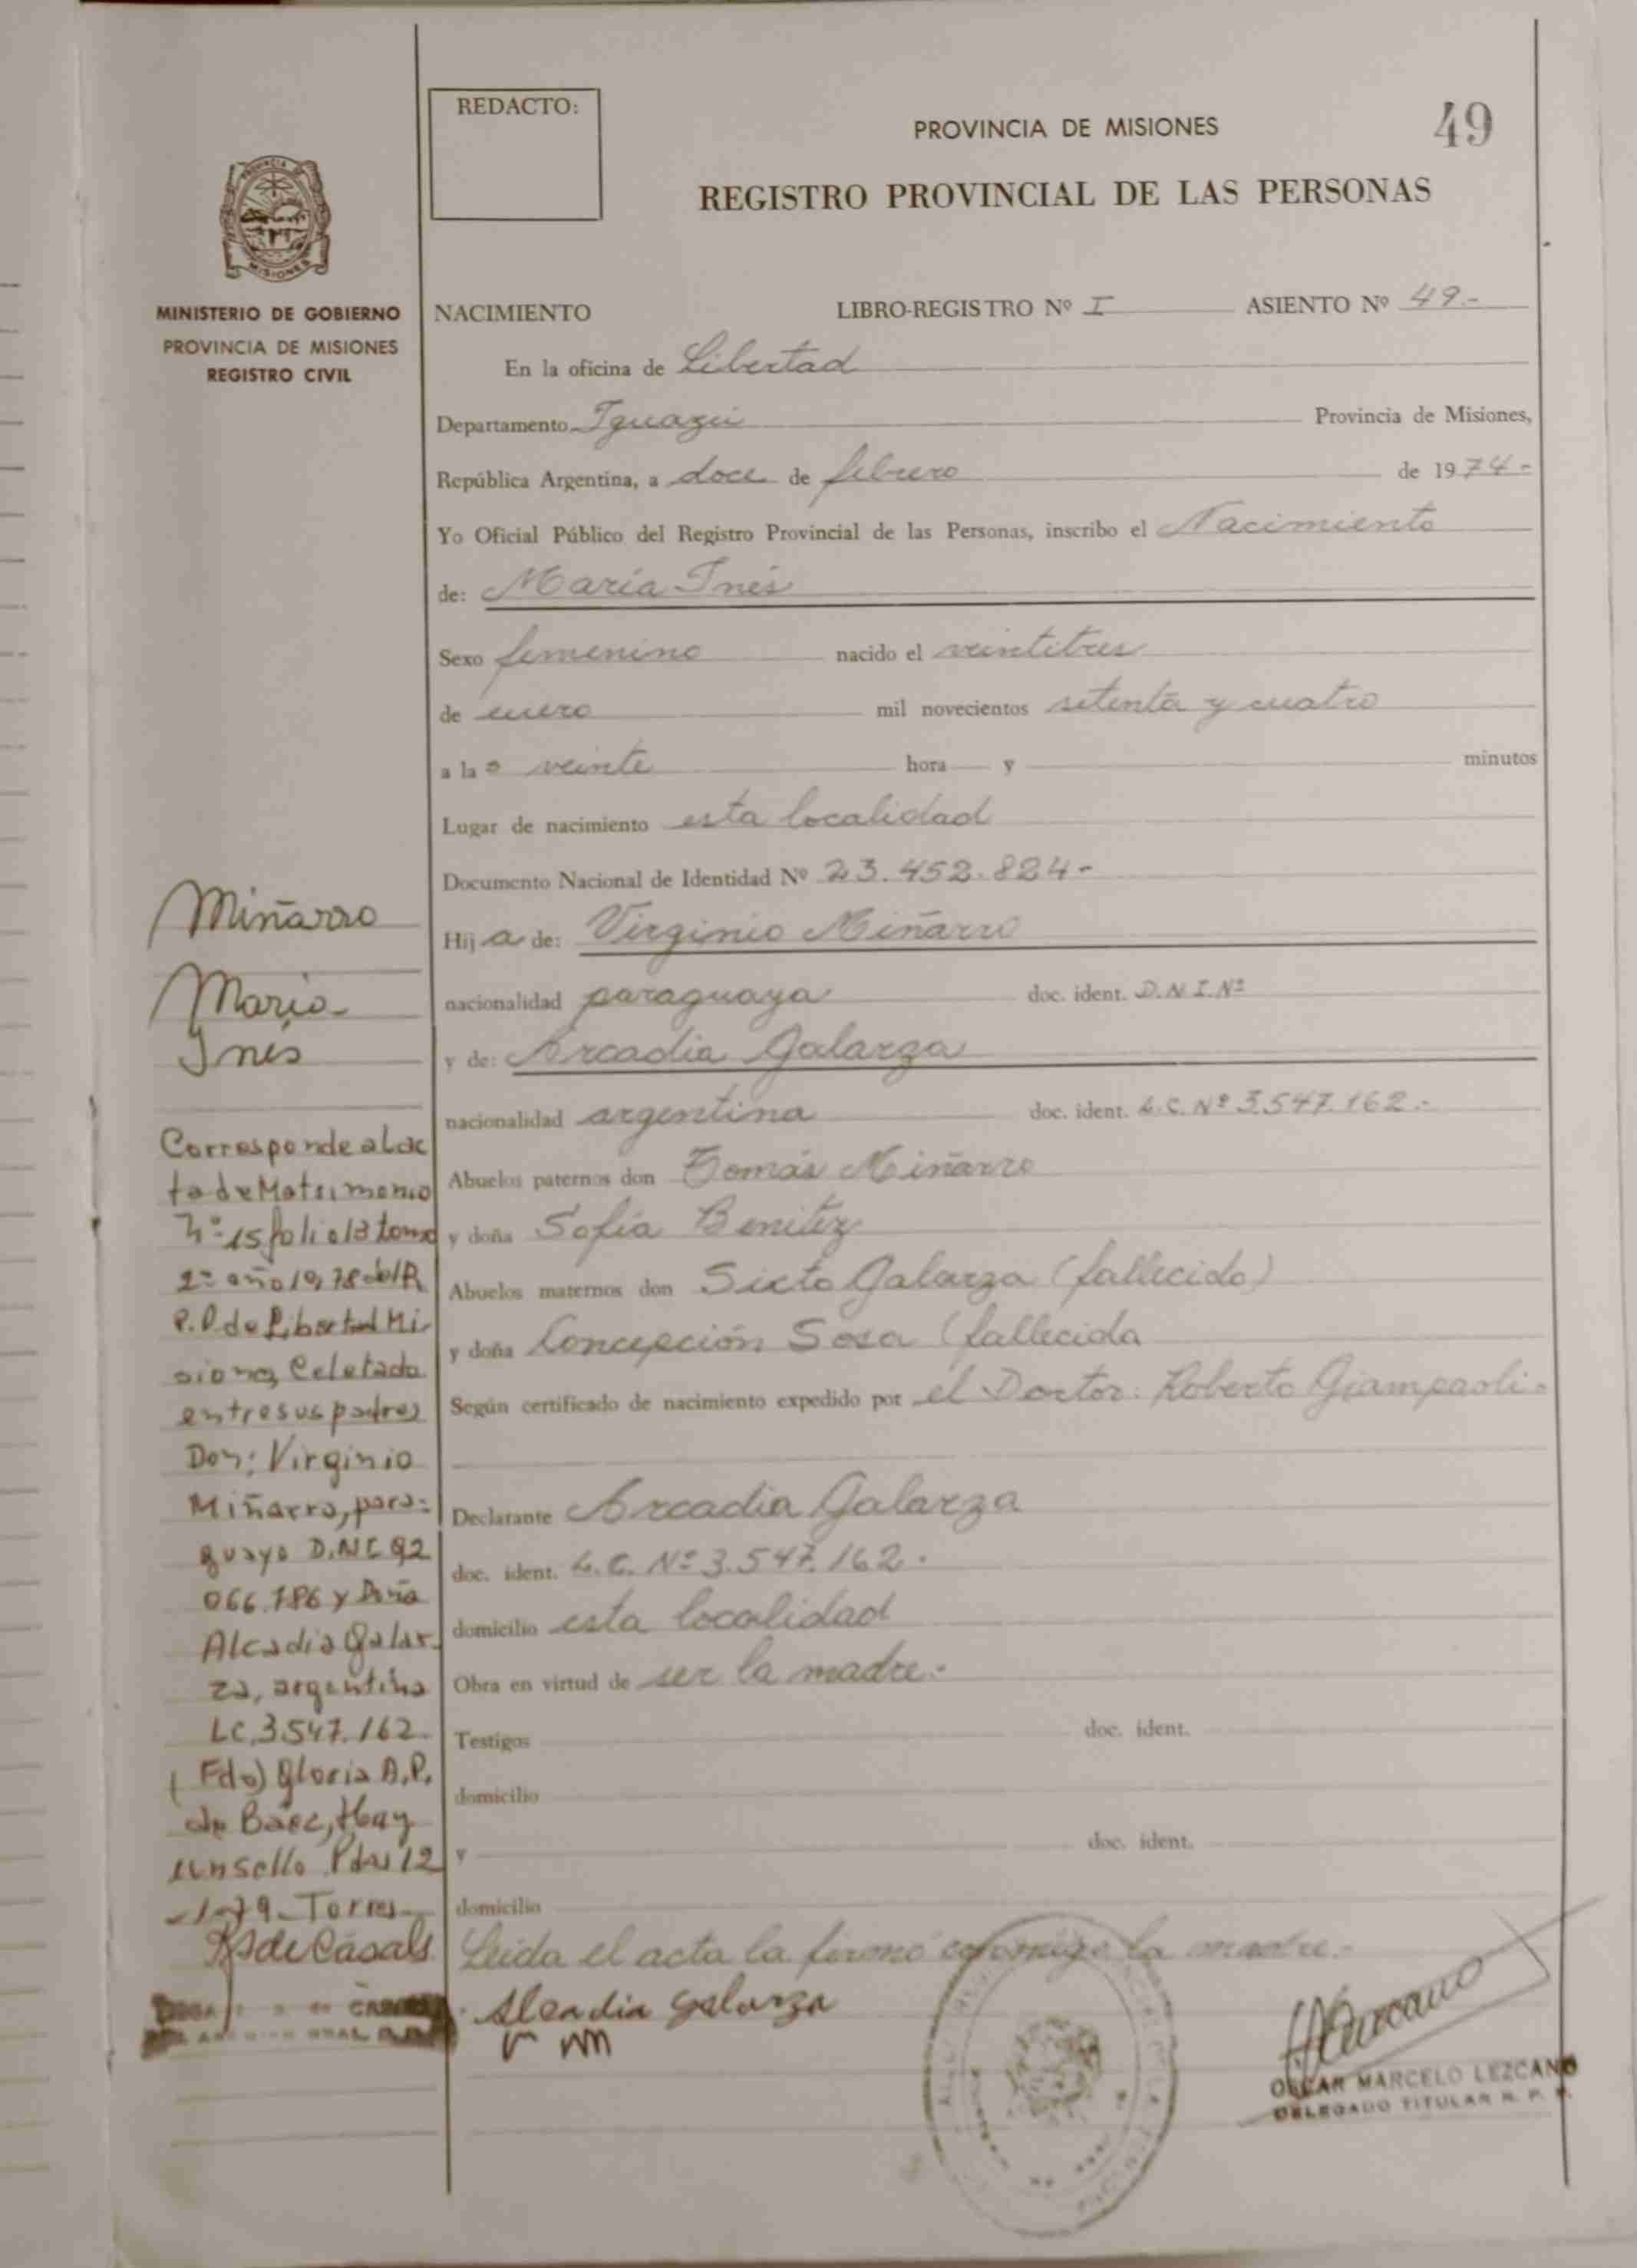 REDACTO:
PROVINCIA DE MISIONES
49
REGISTRO PROVINCIAL DE LAS PERSONAS
PROVINCIA DE
MISIONES
MINISTERIO DE GOBIERNO
PROVINCIA DE MISIONES
REGISTRO CIVIL
NACIMIENTO LIBRO-REGISTRO Nº I ASIENTO Nº 49.-
En la oficina de Libertad
Departamento Iguazú Provincia de Misiones,
República Argentina, a doce de febrero de 1974-
Yo Oficial Público del Registro Provincial de las Personas, inscribo el Nacimiento
de: María Inés
Sexo femenino nacido el veintitres
de enero mil novecientos setenta y cuatro
a las veinte hora y minutos
Lugar de nacimiento esta localidad
Documento Nacional de Identidad Nº 23.452.824-
Hija de: Virginio Miñarro
nacionalidad paraguaya doc. ident. D.N.I.Nº
y de: Arcadia Galarza
nacionalidad argentina doc. ident. L.C. Nº 3.547.162.-
Abuelos paternos don Tomás Miñarro
y doña Sofía Benitez
Abuelos maternos don Sixto Galarza (fallecido)
y doña Concepción Sosa (fallecida
Según certificado de nacimiento expedido por el Doctor: Roberto Giampaoli.
Declarante Arcadia Galarza
doc. ident. L.C. Nº 3.547.162.
domicilio esta localidad
Obra en virtud de ser la madre.-
Testigos doc. ident.
domicilio
y doc. ident.
domicilio
Leida el acta la firmó conmigo la madre.-
Alcadia Galarza
OSCAR MARCELO LEZCANO
DELEGADO TITULAR R. P. P.
Miñarro
María
Inés
Corresponde al ac
ta de Matrimonio
Nº 15 folio 13 tomo
2º año 1978 del R
P.P. de Libertad Mi
siones, Celebrado
entre sus padres
Don: Virginio
Miñarro, para=
guayo D.N.I 92
066.786 y Doña
Alcadia Galar
za, argentina
LC.3.547.162.
(Fdo) Gloria A.P.
de Báez, Hay
un sello Pdas 12
-1-79- Torres
de Casals